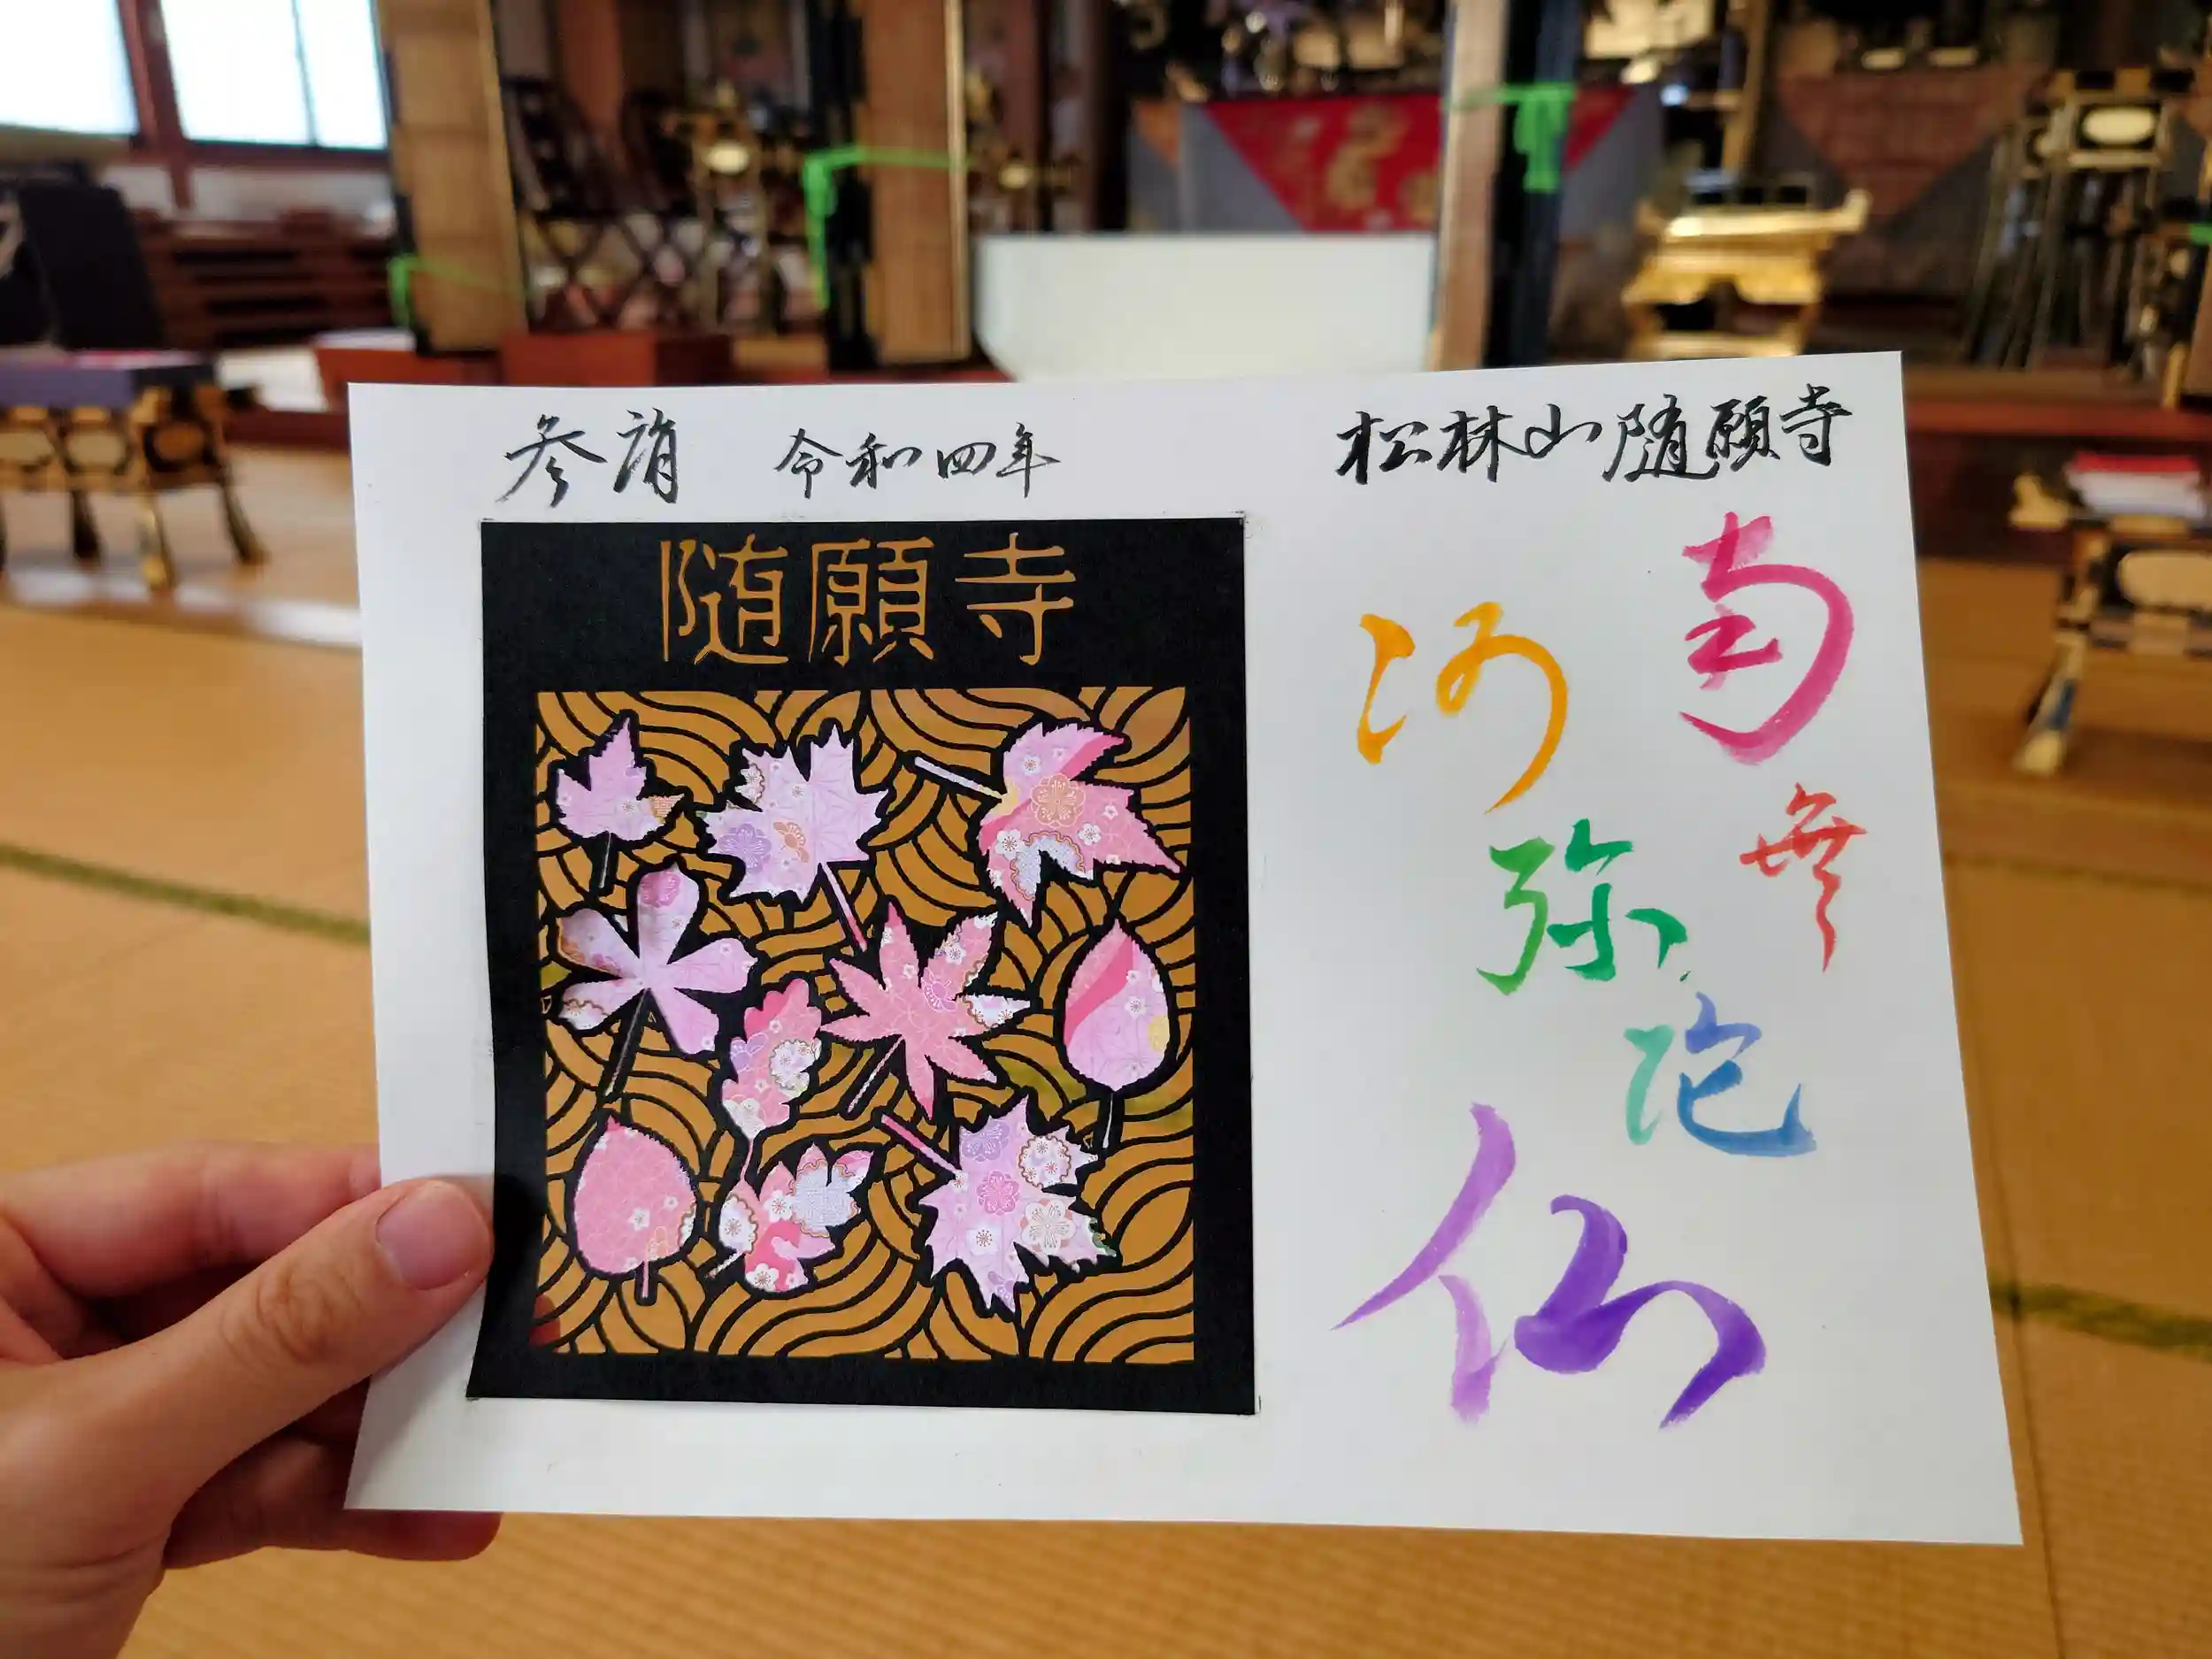 参詣 令和四年
松林山随願寺
随願寺
南無
阿弥陀
仏